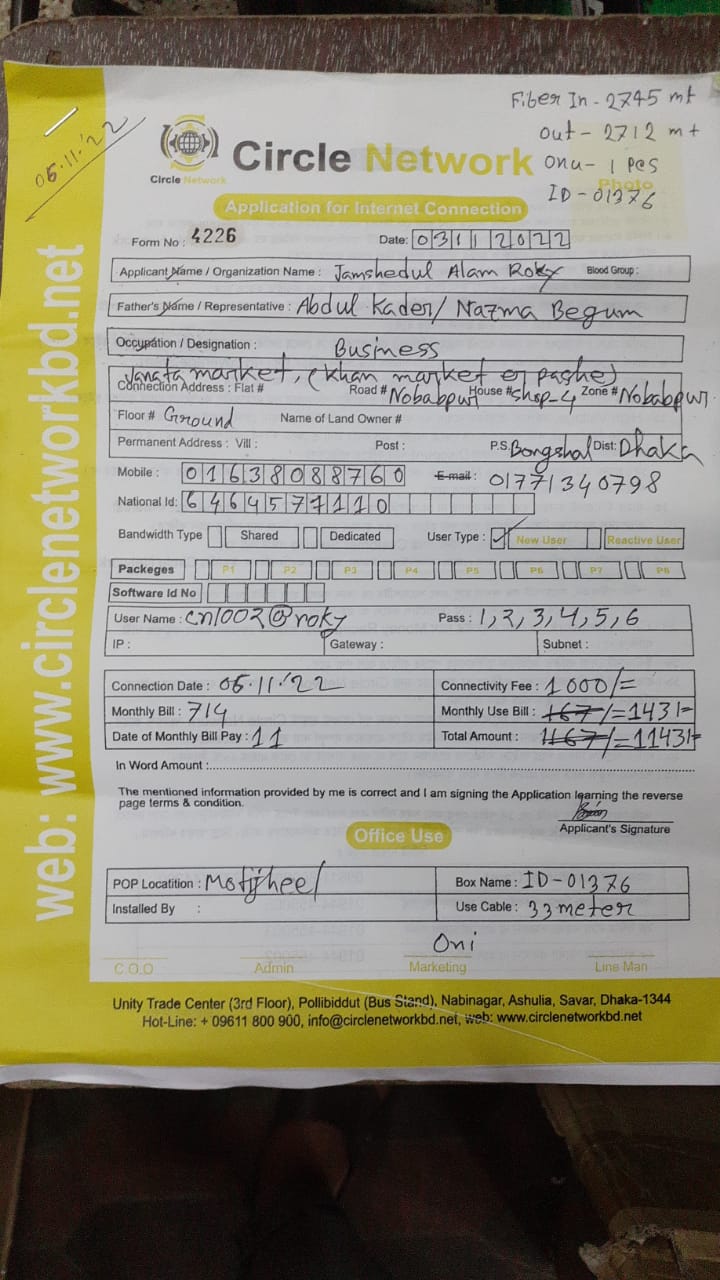 Fiber In - 2745 mt
out - 2712 mt
onu - 1 pcs
ID - 01376
Photo
05.11.'22
Circle Network
Circle Network
Application for Internet Connection
Form No : 4226
Date: 03112022
Applicant Name / Organization Name : Jamshedul Alam Roky Blood Group :
Father's Name / Representative : Abdul Kader/ Nazma Begum
Occupation / Designation : Business
Janata market, (Khan market er pashe)
Connection Address : Flat # Road # Nobabpur House # shop-4 Zone # Nobabpur
Floor # Ground Name of Land Owner #
Permanent Address : Vill : Post : P.S. Bongshal Dist: Dhaka
Mobile : 01638088760 E-mail : 01771340798
National Id: 6464577110
Bandwidth Type Shared Dedicated User Type : ✓ New User Reactive User
Packeges P1 P2 P3 P4 P5 P6 P7 P8
Software Id No
User Name : cn1002@roky Pass : 1,2,3,4,5,6
IP : Gateway : Subnet :
Connection Date : 05.11.'22 Connectivity Fee : 1000/=
Monthly Bill : 714 Monthly Use Bill : 167/= 143/=
Date of Monthly Bill Pay : 11 Total Amount : 1167/= 1143/=
In Word Amount :
The mentioned information provided by me is correct and I am signing the Application learning the reverse
page terms & condition.
Applicant's Signature
Office Use
POP Locatition : Motijheel Box Name : ID-01376
Installed By : Use Cable : 33 meter
Oni
C.O.O Admin Marketing Line Man
Unity Trade Center (3rd Floor), Pollibiddut (Bus Stand), Nabinagar, Ashulia, Savar, Dhaka-1344
Hot-Line: + 09611 800 900, info@circlenetworkbd.net, web: www.circlenetworkbd.net
web: www.circlenetworkbd.net